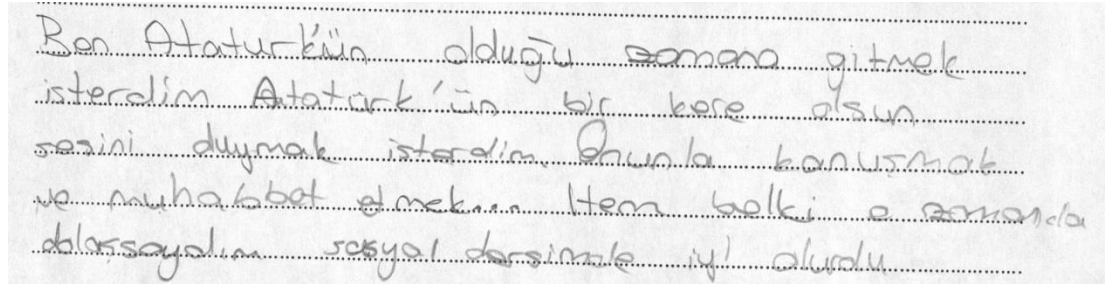 Ben Atatürk'ün olduğu zamana gitmek
isterdim Atatürk'ün bir kere olsun
sesini duymak isterdim. Onunla konuşmak
ve muhabbet etmek... Hem belki o zamanda
dolaşsaydım sosyal dersimde iyi olurdu